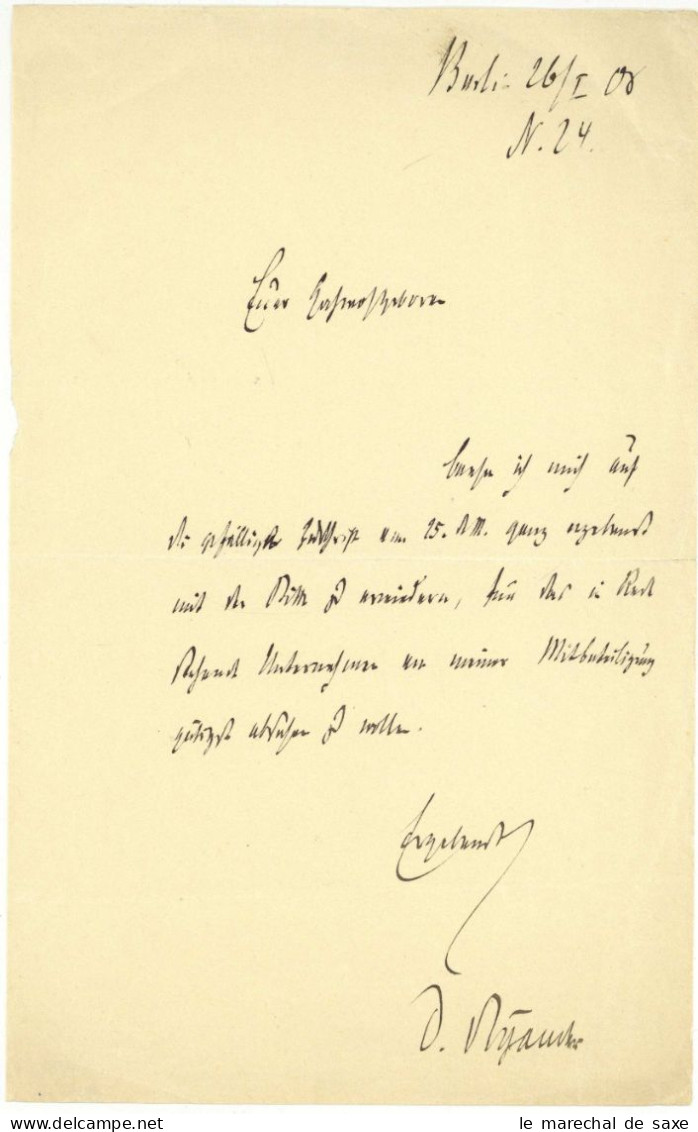 Berlin 26/I 08
N. 24.
Euer Hochwohlgeboren
beehre ich mich auf
die gefällige Zuschrift vom 25. d. M. ganz ergebenst
mit der Bitte zu erwiedern, für das in Rede
stehende Unternehmen von meiner Mitbeteiligung
gütigst absehen zu wollen.
Ergebenst
D.
le marechal de saxe